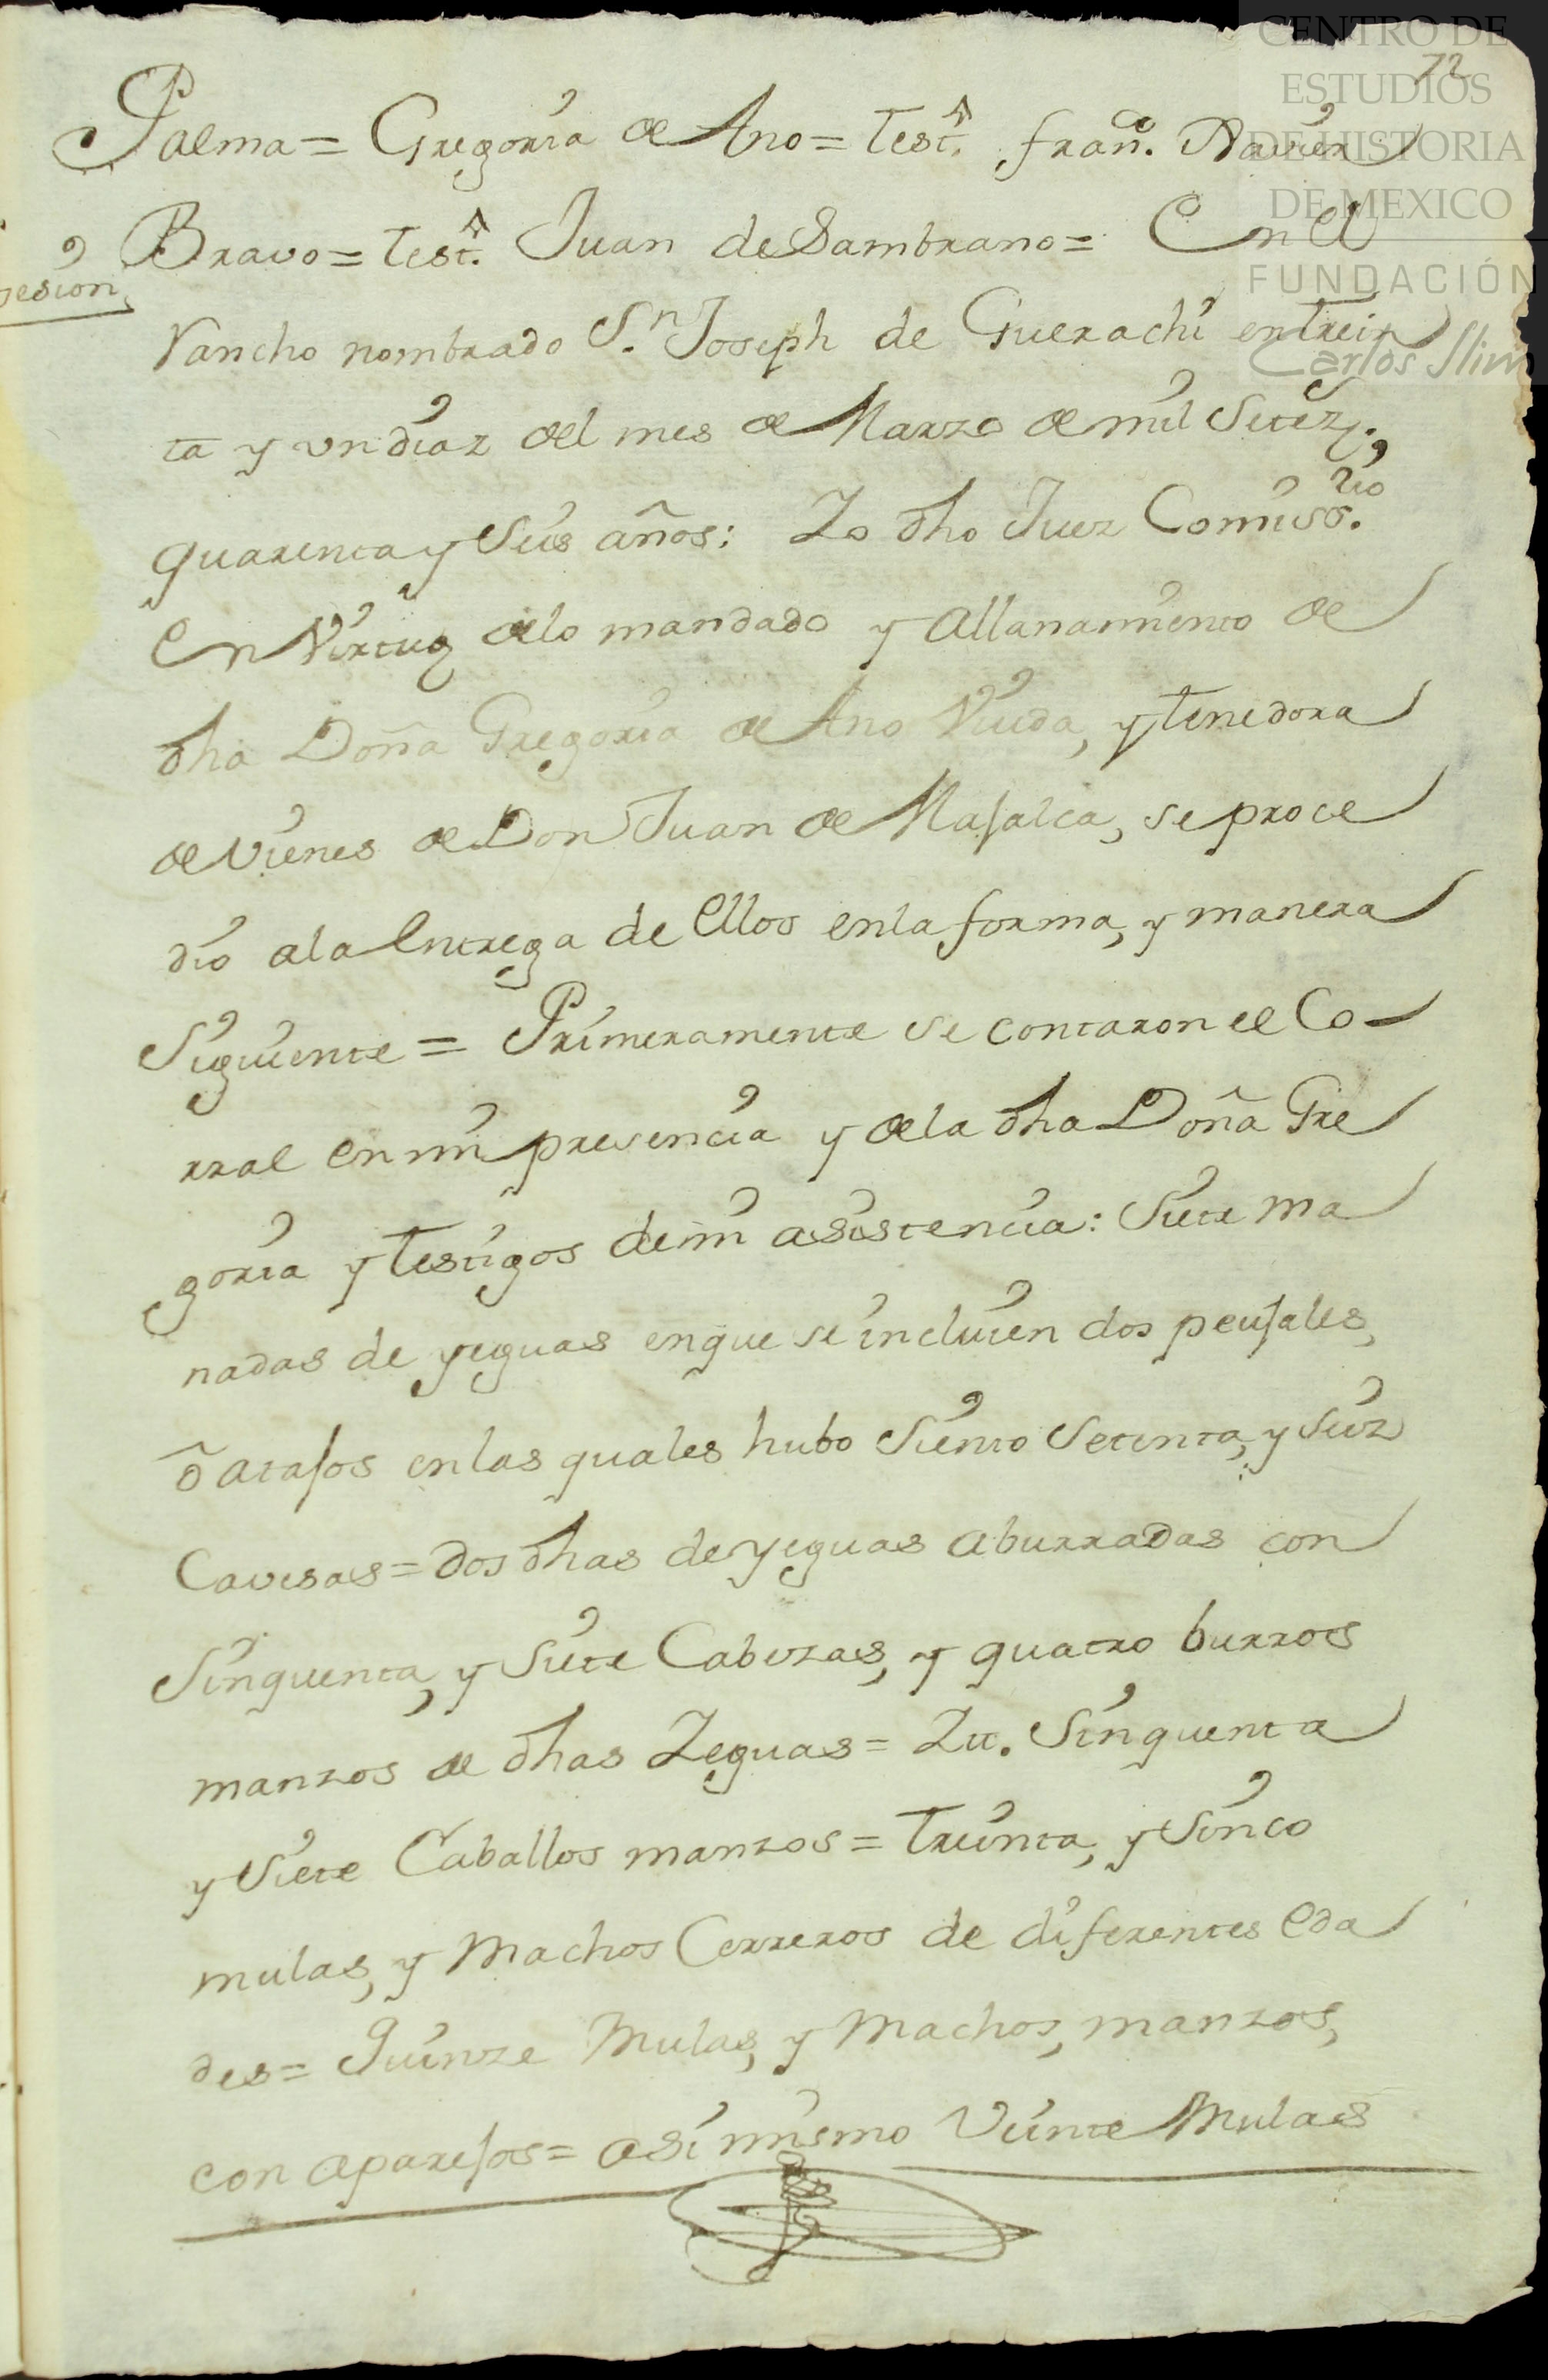 CENTRO DE
ESTUDIOS
DE HISTORIA
DE MEXICO
FUNDACIÓN
Carlos Slim
72
Palma = Gregoria de Ano = test.º fran.co Xavier
Bravo = test.º Juan de Sambrano = En el
sesion
Rancho nombrado S.n Joseph de Guerachi entrein
ta y un diaz del mes de Marzo de mil Setez.
quarenta y Seis años: Yo dho Juez Comiss.rio
En Virtug delo mandado y allanamiento de
dha Doña Gregoria de Ano Viuda, y tenedora
de vienes de Don Juan de Masalca, se proce
dio ala Entrega de Ellos enla forma, y manera
Siguiente = Primeramente se contaron el Co-
rral en mi presencia y dela dha Doña Gre
goria y testigos demi asistencia: Siete ma
nadas de yeguas enque se incluien dos peusales,
ô atasos enlas quales hubo Siento Setenta, y Seiz
Cavesas = dos dhas de yeguas aburradas con
Sinquenta, y Siete Cabezas, y quatro burros
manzos de dhas Yeguas = Ytt. Sinquenta
y Siete Caballos manzos = treinta, y Sinco
mulas, y Machos Cerreros de diferentes Eda
des = Quinze Mulas, y Machos, manzos,
con aparesos = asi mismo Veinte Mulas